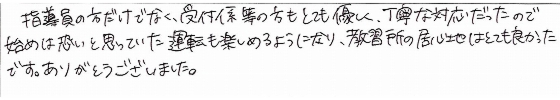 指導員の方だけでなく、受付係等の方もとても優しく、丁寧な対応だったので
始めは恐いと思っていた運転も楽しめるようになり、教習所の居心地はとても良かった
です。ありがとうございました。